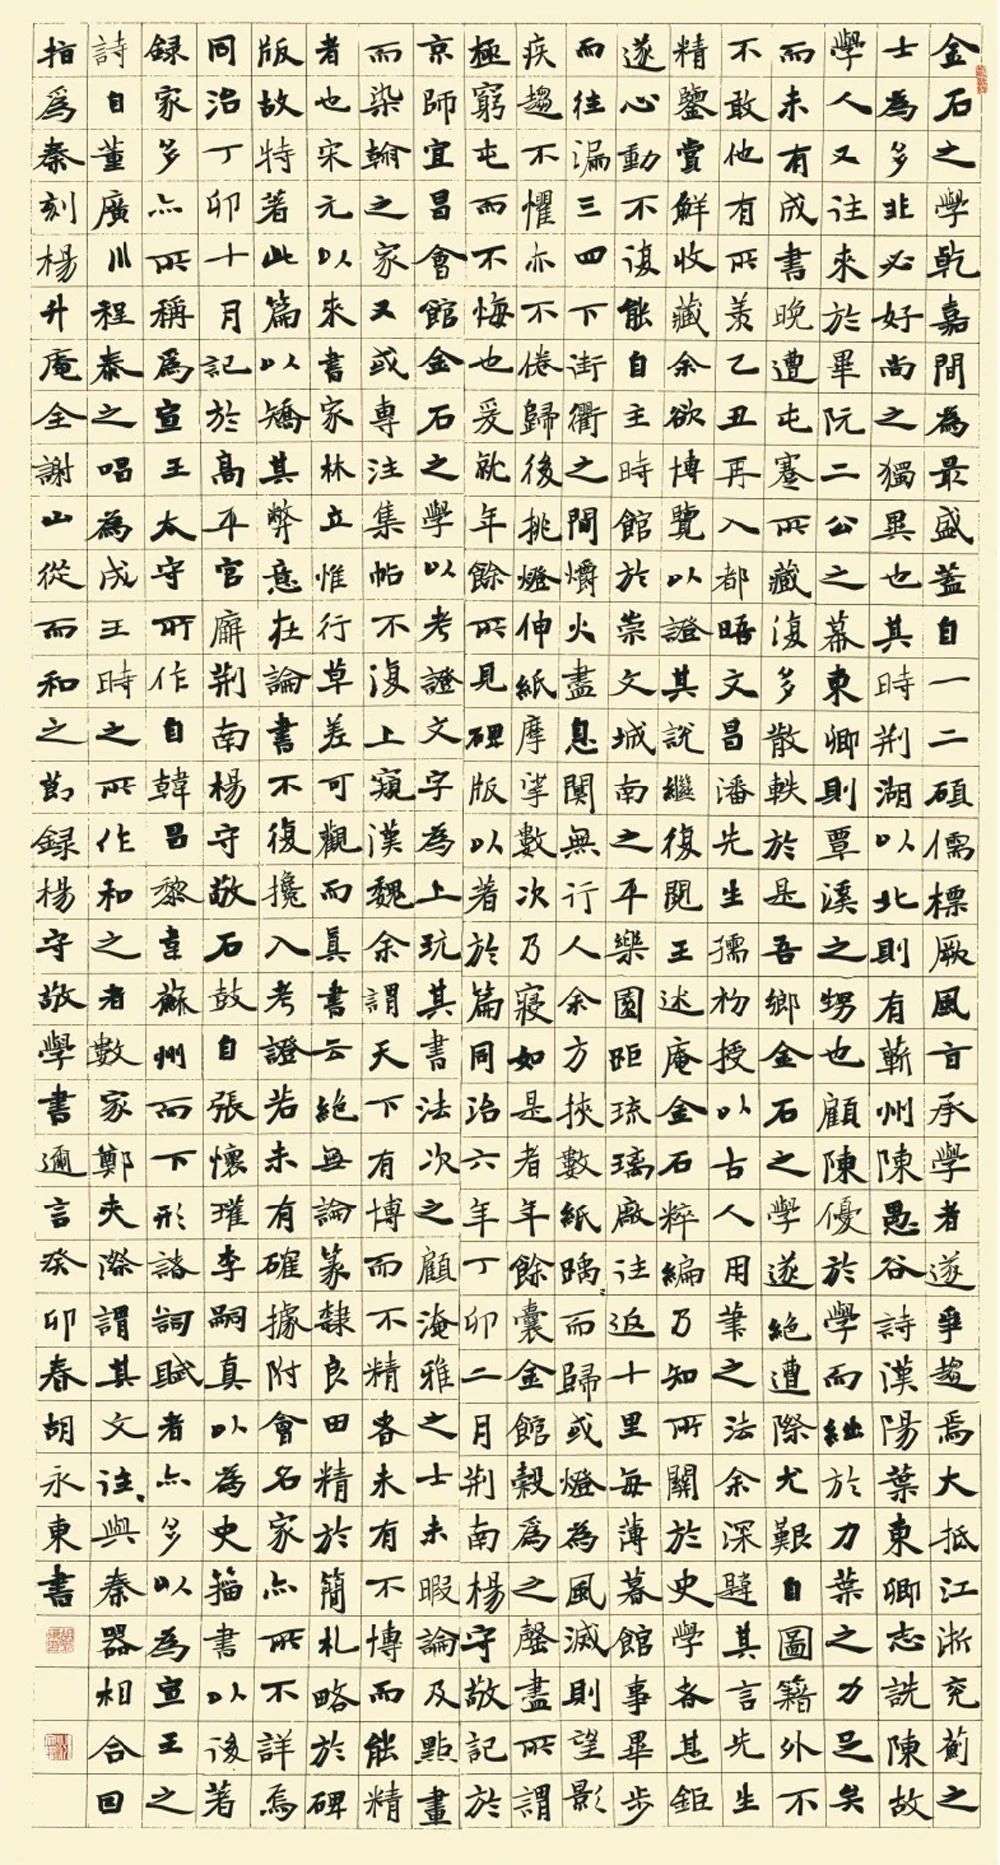 金石之學乾嘉間為最盛蓋自一二碩儒標厥風旨承學者遂爭趨焉大抵江浙兖薊之
士為多非必好尚之獨異也其時荆湖以北則有蘄州陳愚谷詩漢陽葉東卿志詵陳故
學人又注來於畢阮二公之幕東卿則覃溪之甥也顧陳優於學而絀於力葉之力足矣
而未有成書晚遭屯蹇所藏復多散軼於是吾鄉金石之學遂絶遭際尤艱自圖籍外不
不敢他有所羨乙丑再入都晤文昌潘先生孺初授以古人用筆之法余深韙其言先生
精鑒賞鮮收藏余欲博覽以證其說繼復閱王述庵金石粹編乃知所關於史學者甚鉅
遂心動不復能自主時館於崇文城南之平樂園距琉璃廠注返十里每薄暮館事畢步
而往漏三四下街衢之間爝火盡息闃無行人余方挾數紙踽而歸或燈為風滅則望影
疾趨不懼亦不倦歸後挑燈伸紙摩挲數次乃寢如是者年餘囊金館穀爲之罄盡所謂
極窮屯而不悔也爰就年餘所見碑版以著於篇同治六年丁卯二月荆南楊守敬記於
京師宜昌會館金石之學以考證文字為上玩其書法次之顧淹雅之士未暇論及點畫
而染翰之家又或專注集帖不復上窺漢魏余謂天下有博而不精者未有不博而能精
者也宋元以來書家林立惟行草差可觀而真書云絶無論篆隸良田精於簡札略於碑
版故特著此篇以矯其弊意在論書不復攙入考證若未有確據附會名家亦所不詳焉
同治丁卯十月記於高平官廨荆南楊守敬石鼓自張懷瓘李嗣真以為史籀書以後著
録家多亦所稱爲宣王太守所作自韓昌黎韋蘇州而下形諸詞賦者亦多以為宣王之
詩自董廣川程泰之唱為成王時之所作和之者數家鄭夾漈謂其文注與秦器相合回
指爲秦刻楊升庵全謝山從而和之節録楊守敬學書邇言癸卯春胡永東書